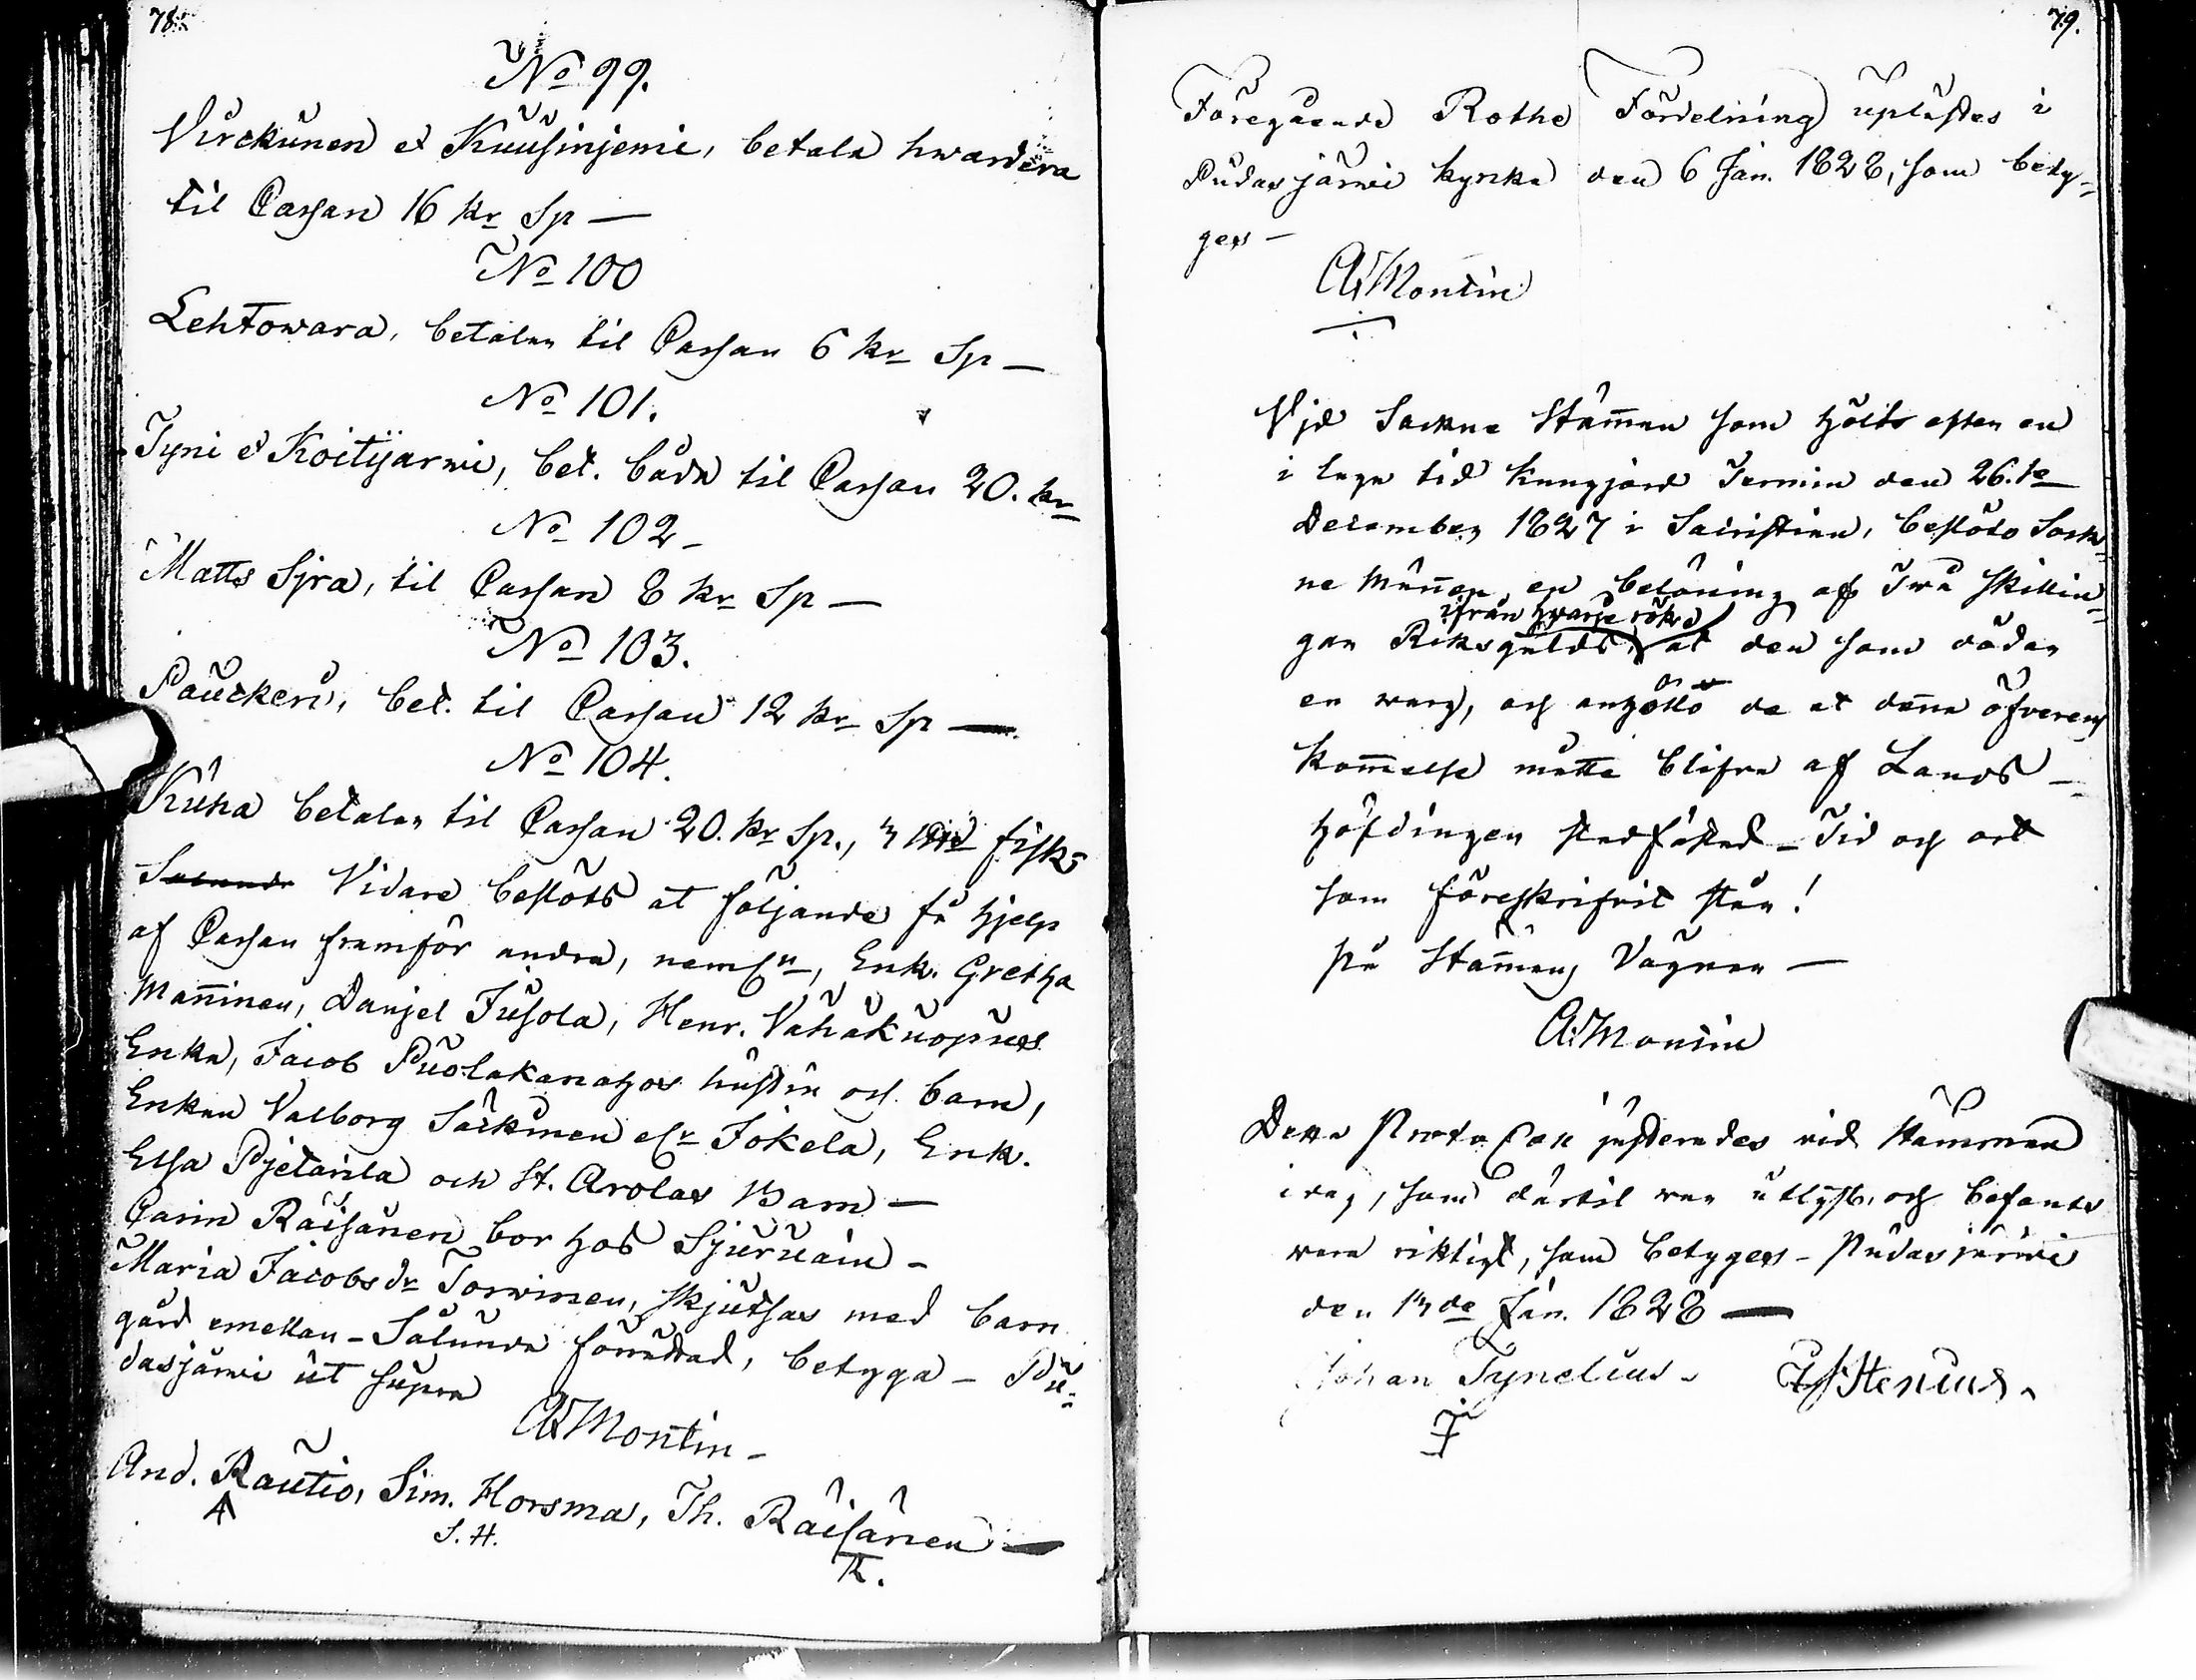 78.
No 99.
Virckunen et Kuusinjemi, betala hwardera
til Cassan 16 kr Sp —
No 100
Lehtowara, betalar til Cassan 6 kr Sp —
No 101.
Tyni et Koitijärwi, bet. båda til Cassan 20. kr
No 102 –
Matts Sjra, til Cassan 8 kr Sp —
No 103.
Pauckeri, bet. til Cassan 12 kr Sp —
No 104.
Kuha betalar til Cassan 20. kr Sp., fisk-
Vidare beslöts at följande få hjelp
af Cassan framför andra, neml:n, Enk. Gretha
Manninen, Danjel Jusola, Henr. Vähäkuopus
Enka, Jacob Puolakanahos hustru och barn,
Enkan Valborg Särkinen elr Jokela, Enk.
Elsa Pjetarila och St. Arolas Barn —
Carin Räisänen bor hos Sjuruain –
Maria Jacobs dr Torwinen, skjutsas med barn
gård emellan – Sålunda förrättad, betyga – Pu-
dasjärwi ut supra
A Montin –
And. Rautio, Sim. Horsma, Th. Räisänen —
S. H.
79.
Föregående Rothe Fördelning uplästes i
Pudasjärwi kyrka den 6 Jan. 1828, som bety-
ges –
A Montin
Vjd Sockne Stämman som hölts efter en
i laga tid kungjord Termin den 26.te
December 1827 i Sacristian, beslöto Sock-
ne Männen en belöning af Två skillin-
ifrån hvarje rök
gar Riksgälds, at den som dödar
en warg, och anhöllo de at denna öfverens-
kommelse måtte blifva af Lands-
höfdingen stadfästad – Tid och ort
som föreskrifvit står!
på Stämmans Vägnar —
A Montin
Detta Protocoll justerades vid stämman
i dag, som därtil war utlyst, och befants
wara riktigt, som betyges – Pudasjärwi
den 13de Jan. 1828 —
Johan Tynelius – Stenius.